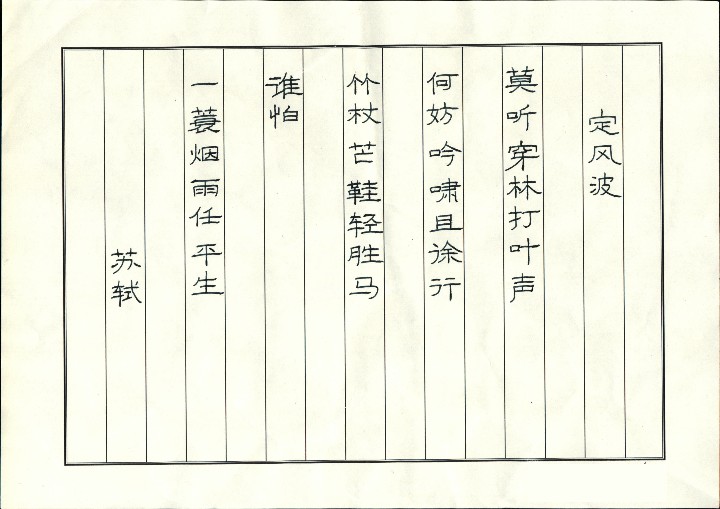 定风波
莫听穿林打叶声
何妨吟啸且徐行
竹杖芒鞋轻胜马
谁怕
一蓑烟雨任平生
苏轼